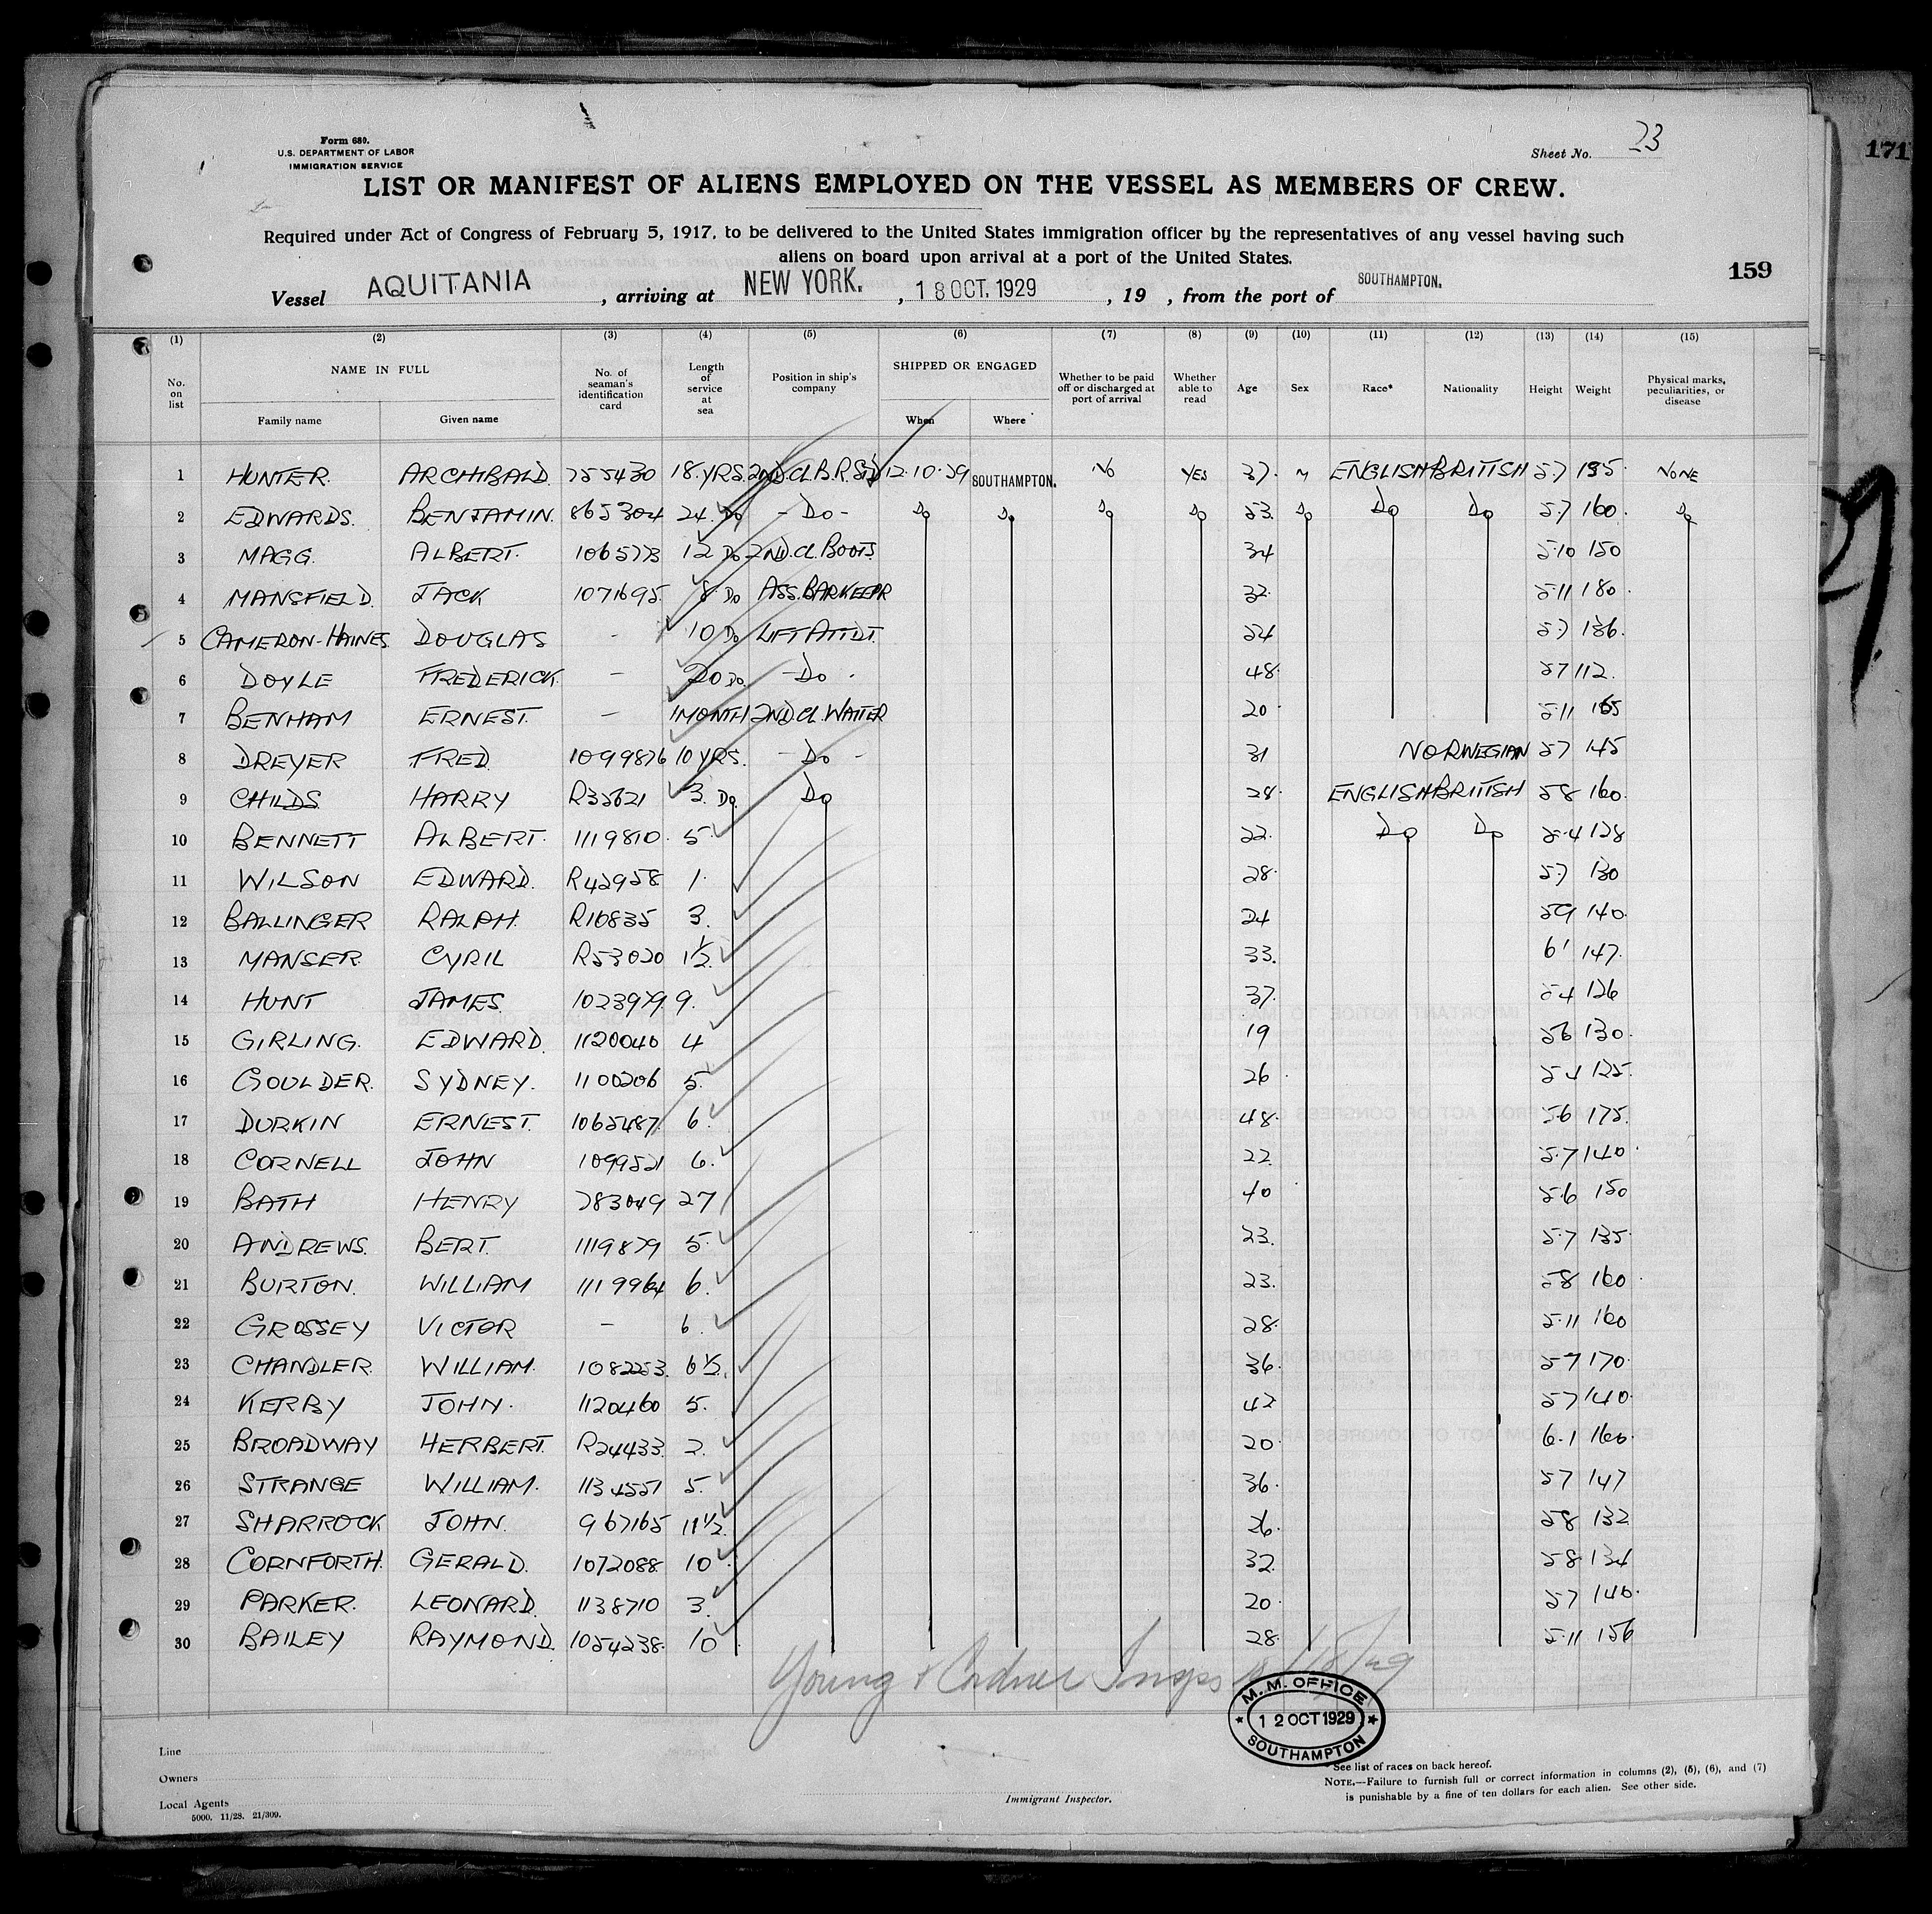 Form 680.
U.S. DEPARTMENT OF LABOR
IMMIGRATION SERVICE
Sheet No. 23
171
LIST OR MANIFEST OF ALIENS EMPLOYED ON THE VESSEL AS MEMBERS OF CREW.
Required under Act of Congress of February 5, 1917, to be delivered to the United States immigration officer by the representatives of any vessel having such
aliens on board upon arrival at a port of the United States.
159
Vessel AQUITANIA, arriving at NEW YORK., 18 OCT. 1929, 19 , from the port of SOUTHAMPTON.
(1) (2) (3) (4) (5) (6) (7) (8) (9) (10) (11) (12) (13) (14) (15)
No. on list NAME IN FULL Family name Given name No. of seaman's identification card Length of service at sea Position in ship's company SHIPPED OR ENGAGED When Where Whether to be paid off or discharged at port of arrival Whether able to read Age Sex Race* Nationality Height Weight Physical marks, peculiarities, or disease
1 HUNTER. ARCHIBALD. 755430 18.YRS. 2ND.CL.B.R.Std 12.10.29 SOUTHAMPTON. NO YES 37. M ENGLISH BRITISH 57 135. NONE
2 EDWARDS. BENJAMIN. 865304 24. Do - Do - Do Do Do Do 53. Do Do Do 5.7 160. Do
3 MAGG. ALBERT. 1065773 12 Do 2ND.CL.BOOTS. 34 5.10 150
4 MANSFIELD. JACK 1071695. 8. Do ASS.BARKEEPR 32. 5.11 180.
5 CAMERON-HAINES. DOUGLAS - 10 Do LIFT ATTDT. 24 57 136.
6 DOYLE FREDERICK. - 20 Do. - Do - 48. 57 112.
7 BENHAM ERNEST. - 1 MONTH 2ND.CL.WAITER 20. 5.11 165
8 DREYER FRED. 1099876 10 YRS. - Do - 31 NORWEGIAN 57 145
9 CHILDS HARRY R35621 3. Do. Do 28. ENGLISH BRITISH 58 160.
10 BENNETT ALBERT. 1119810. 5. 22. Do Do 5.4 128
11 WILSON EDWARD. R42958 1. 28. 57 130
12 BALLINGER RALPH. R10835 3. 24 59 140.
13 MANSER. CYRIL R53020 1½. 33. 6' 147.
14 HUNT JAMES. 1023979. 9. 37. 54 126
15 GIRLING. EDWARD. 1120040 4 19 56 130.
16 GOULDER. SYDNEY. 1100206 5. 26. 54 125.
17 DURKIN ERNEST. 1065487. 6. 48. 56 175.
18 CORNELL JOHN 1099521 6. 22. 5.7 140.
19 BATH HENRY 783049 27 40 5.6 150
20 ANDREWS. BERT. 1119879 5. 23. 5.7 135.
21 BURTON. WILLIAM 1119964 6. 23. 58 160.
22 GROSSEY VICTOR - 6. 28. 5.11 160
23 CHANDLER. WILLIAM. 1082253. 6½. 36. 57 170.
24 KERBY JOHN. 1120460 5. 42 57 140.
25 BROADWAY HERBERT. R24433. 2. 20. 6.1 160.
26 STRANGE WILLIAM. 1134551 5. 36. 57 147
27 SHARROCK JOHN. 967165 11½. 26. 58 132
28 CORNFORTH. GERALD. 1072088. 10. 32. 58 134
29 PARKER. LEONARD. 1138710 3. 20. 57 140.
30 BAILEY RAYMOND. 1054238. 10. 28. 5.11 156
Young & Cordner Insps
M.M. OFFICE
12 OCT 1929
SOUTHAMPTON
Line
Owners
Local Agents
5000. 11/28. 21/309.
Immigrant Inspector.
* See list of races on back hereof.
NOTE.—Failure to furnish full or correct information in columns (2), (5), (6), and (7)
is punishable by a fine of ten dollars for each alien. See other side.